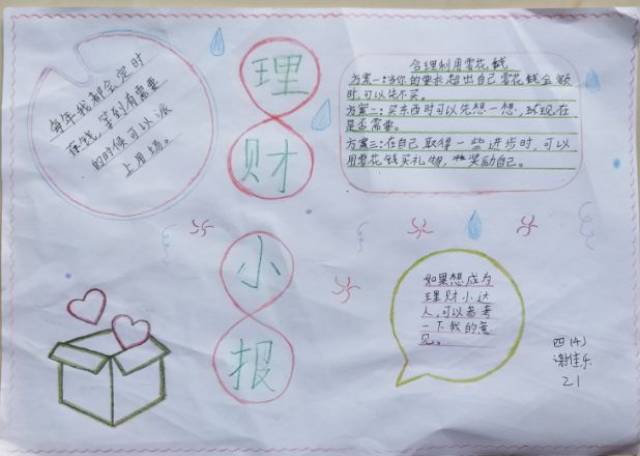 每年我都会定时
存钱，等到有需要
的时候可以派
上用场。
理
财
小
报
合理利用零花钱
方案一：当你的要求超出自己零花钱金额
时，可以先不买。
方案二：买东西时可以先想一想，我现在
是否需要。
方案三：在自己取得一些进步时，可以
用零花钱买礼物，奖励自己。
如果想成为
理财小达
人，可以参考
一下我的意
见。
四(4)
谢佳乐
21